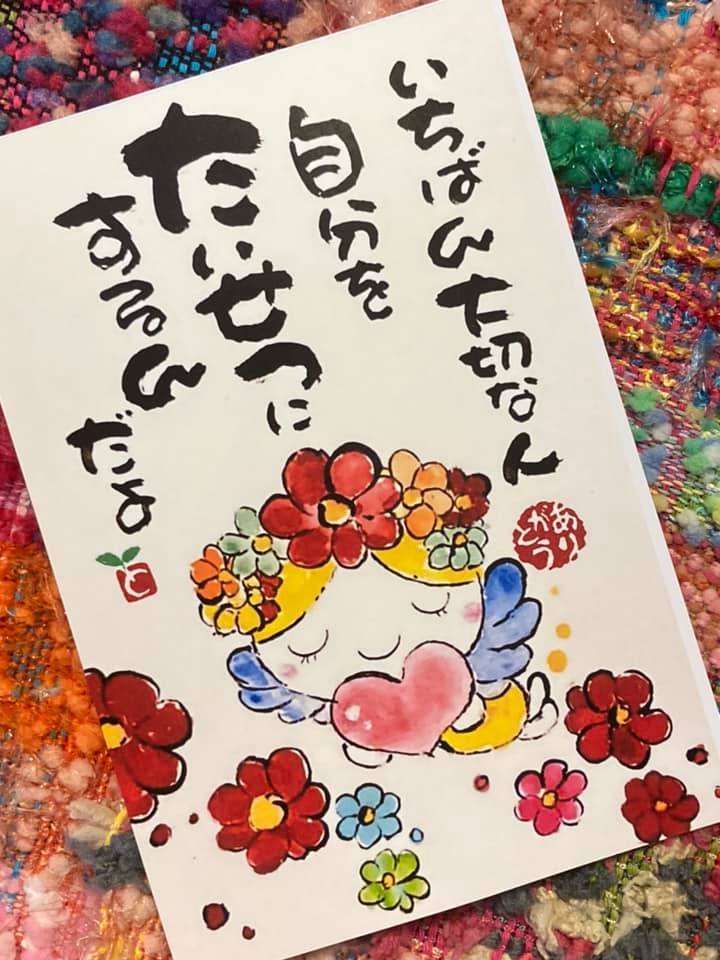 いちばん大切なん
自分を
たいせつに
するんだよ
ありがとう
と